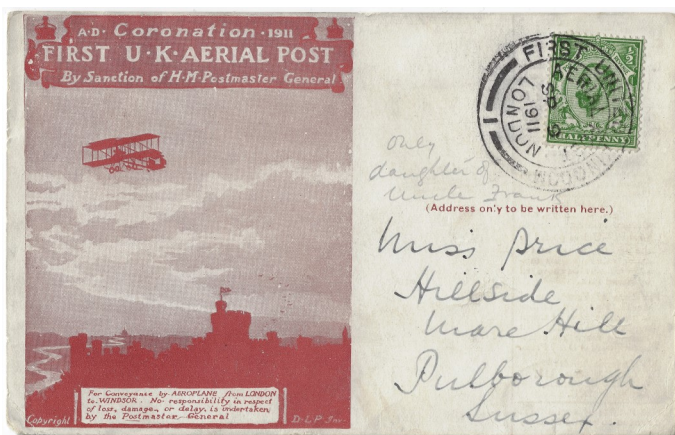 A·D· Coronation ·1911
FIRST U·K·AERIAL POST
By Sanction of H·M·Postmaster General
For Conveyance by AEROPLANE from LONDON
to WINDSOR. No responsibility in respect
of loss, damage, or delay, is undertaken
by the Postmaster General
Copyright
D·L·P
FIRST UNITED
AERIAL
SP 9
1911
LONDON
HALFPENNY
only
daughter of
Uncle Frank
(Address only to be written here.)
Miss Price
Hillside
Mare Hill
Pulborough
Sussex.